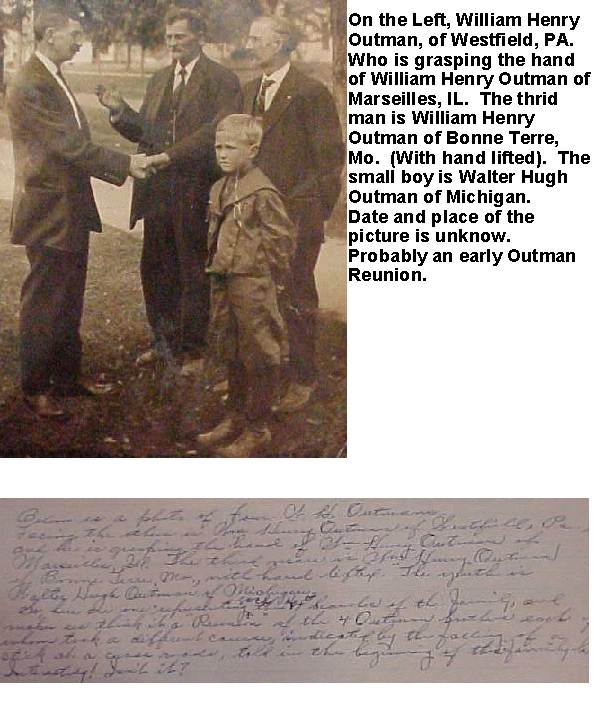 On the Left, William Henry
Outman, of Westfield, PA.
Who is grasping the hand
of William Henry Outman of
Marseilles, IL.  The thrid
man is William Henry
Outman of Bonne Terre,
Mo.  (With hand lifted).  The
small boy is Walter Hugh
Outman of Michigan.
Date and place of the
picture is unknow.
Probably an early Outman
Reunion.
is a photo of four W. H. Outmans.
Facing the other is Wm Henry Outman of Westfield, Pa.
and he is grasping the hand of Wm Henry Outman of
Marseilles, Ill. The third man is Wm Henry Outman
of Bonne Terre, Mo., with hand lifted. The youth is
Walter Hugh Outman of Michigan.
one representing branch of the family, and
makes us think it a Reunion of the 4 Outman each
whom took a different course, indicated by the falling of
stick at a cross roads, told in the beginning of this family
Interesting! Isn't it?